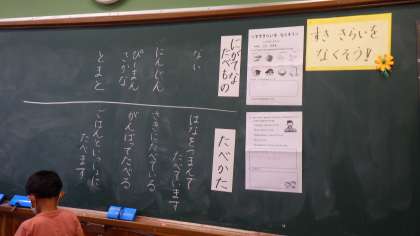 すき きらいを
なくそう!
にがてな
たべもの
ない
にんじん
ぴーまん
さかな
とまと
たべかた
はなをつまんで
たべています
さきにたべている
がんばってたべる
ごはんといっしょに
たべます